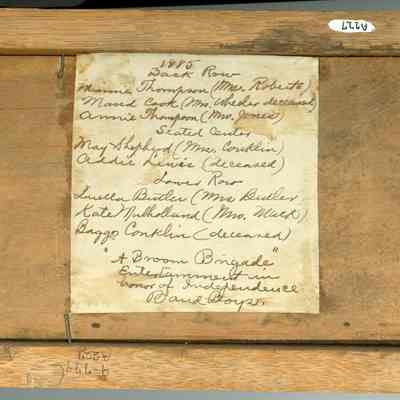 A227
1885
Back Row
Minnie Thompson (Mrs. Roberts)
Maud Cook (Mrs. Wheeler deceased)
Annie Thompson (Mrs. Jones)
Seated Center
May Shepherd (Mrs. Conklin)
Addie Lewis (deceased)
Lower Row
Luella Butler (Mrs Butler
Kate Mulholland (Mrs. Wald)
Baggs Conklin (deceased)
"A Broom Brigade"
Entertainment in
honor of Independence
Band Boys.
A227